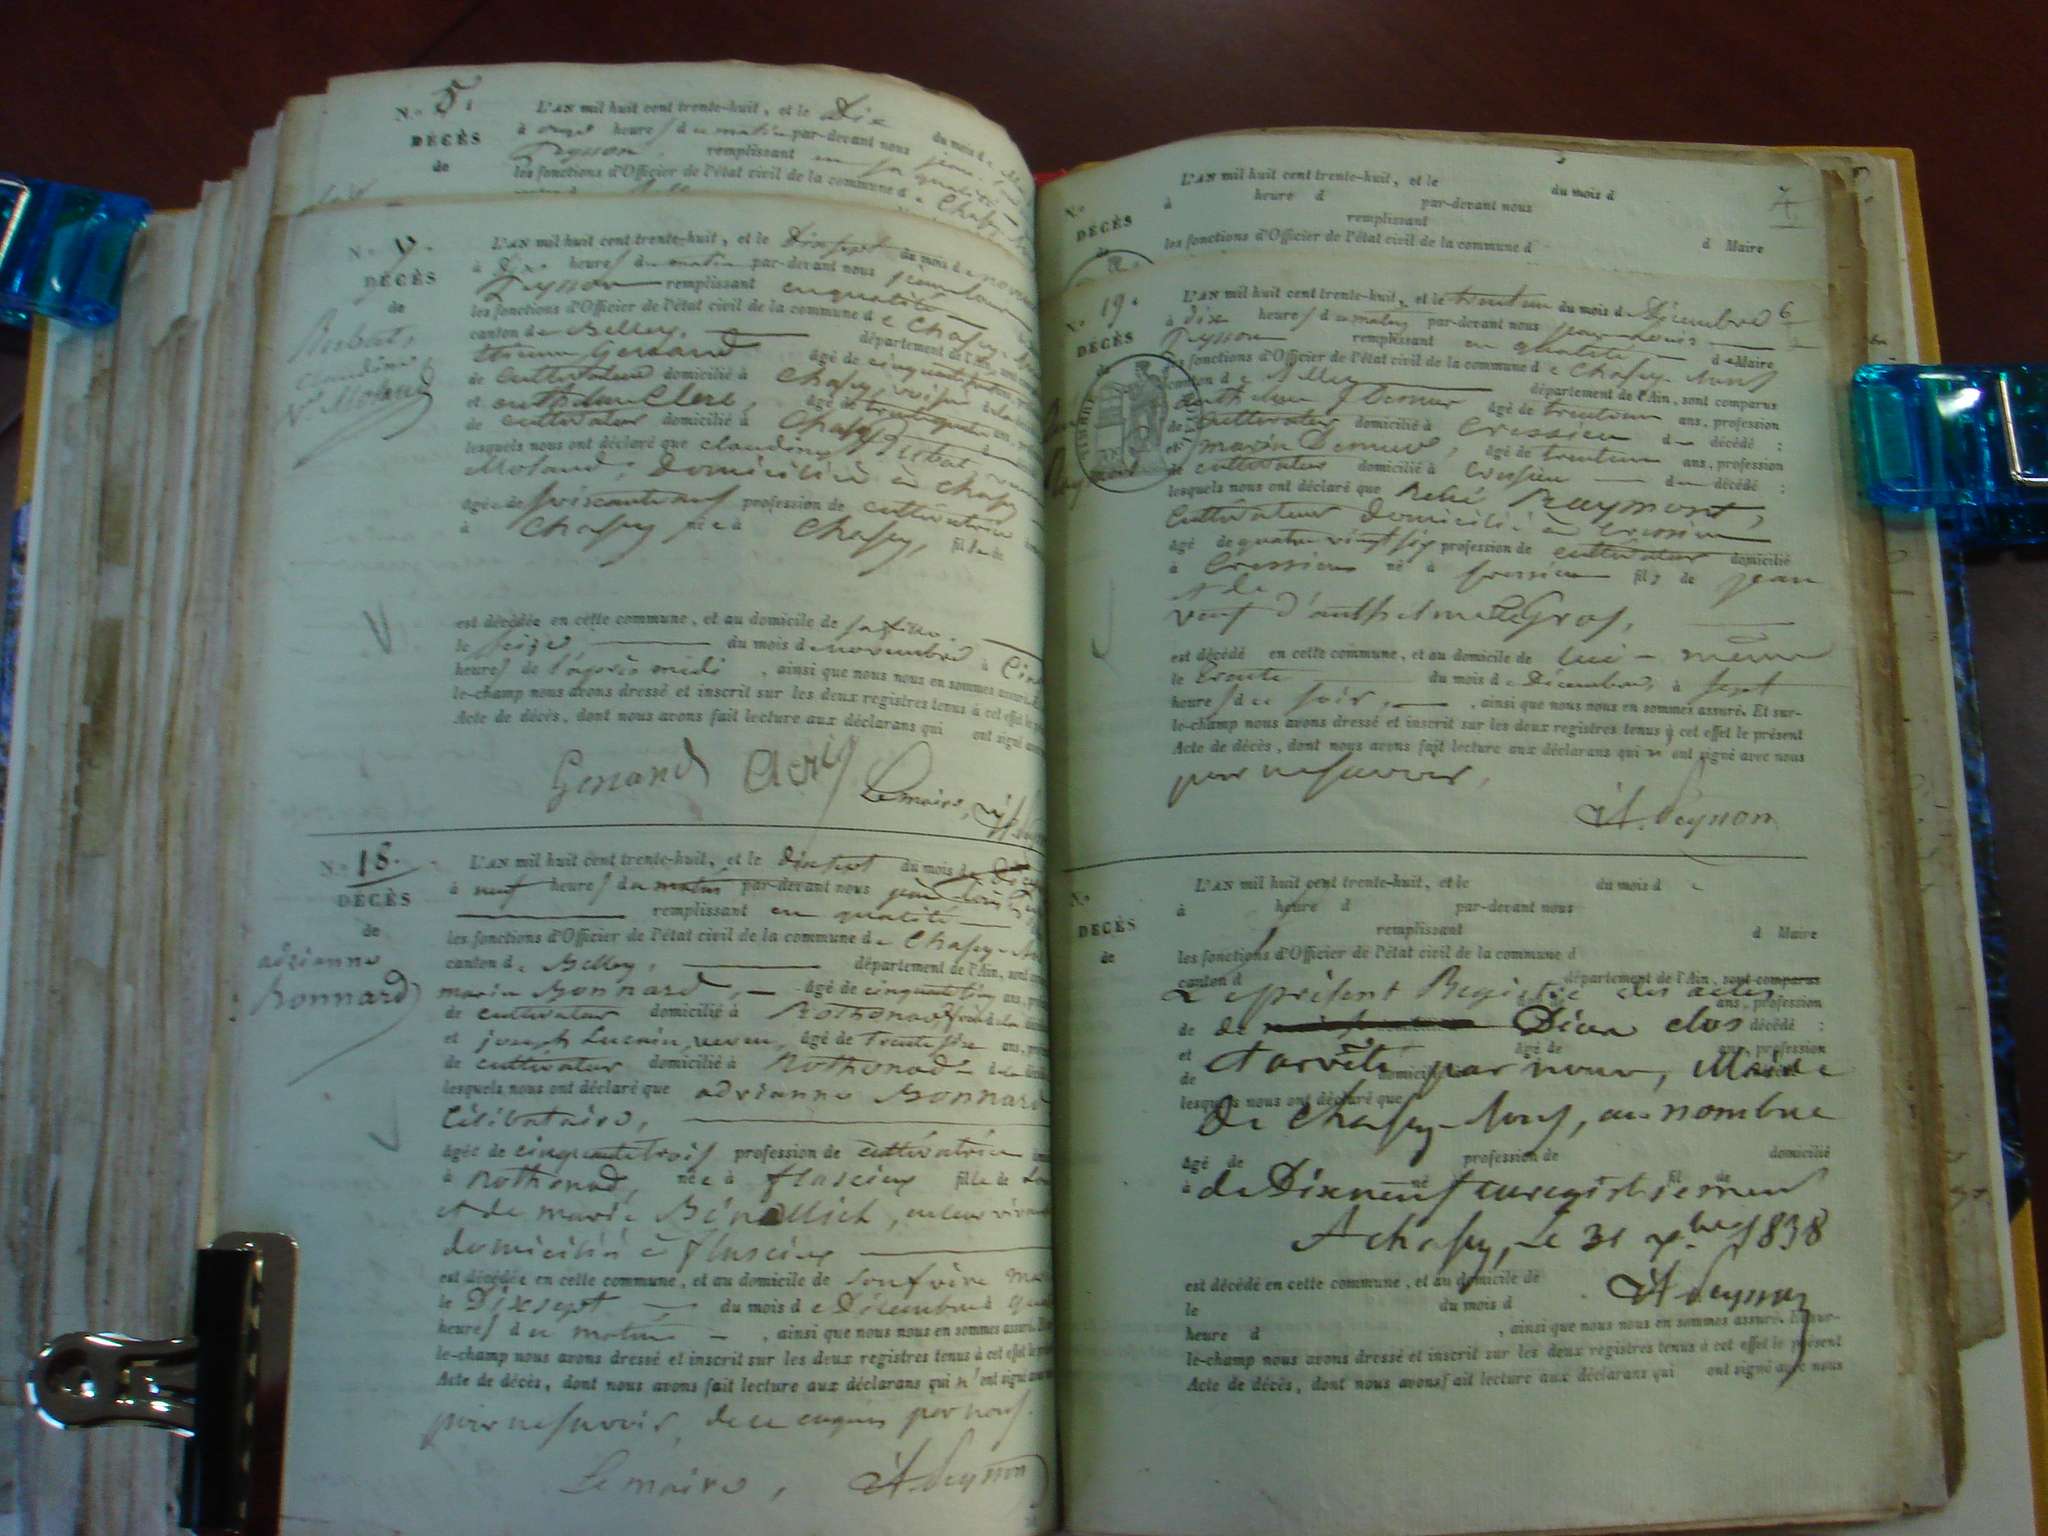 N.° 5.
DÉCÈS
de
L'AN mil huit cent trente-huit, et le Dix du mois d
à onze heures du matin par-devant nous jean
Peysson remplissant en sa qualité
les fonctions d'Officier de l'état civil de la commune de Chasey
N.°
DÉCÈS
de
Claudine
V.e Moland
L'AN mil huit cent trente-huit, et le Dixsept du mois de novem
à Dix heures du matin par-devant nous jean Louis
Peysson remplissant en qualité
les fonctions d'Officier de l'état civil de la commune de Chasey
canton de Belley. département de l'Ain, sont
Genand âgé de cinquante
de cultivateur domicilié à Chasey voisin
et anthelme Clerc, âgé de trente ans
de cultivateur domicilié à Chasey
lesquels nous ont déclaré que claudine
Moland, Domiciliée à Chasey
âgée de soixanteneuf profession de cultivatrice
à Chasey née à Chasey, fille de
est décédée en cette commune, et au domicile de
le seize du mois de novembre à Cinq
heures de l'après midi, ainsi que nous nous en sommes assuré. Et
le-champ nous avons dressé et inscrit sur les deux registres tenus à cet effet le
Acte de décès, dont nous avons fait lecture aux déclarans qui ont signé avec
Genand Clerc
Le maire,
N.° 18.
DÉCÈS
de
adrianne
Bonnard
L'AN mil huit cent trente-huit, et le dixsept du mois de Déc
à neuf heures du matin par-devant nous jean Louis
remplissant en qualité
les fonctions d'Officier de l'état civil de la commune de Chasey-
canton de Belley, département de l'Ain, sont
marin Bonnard, âgé de cinquantesix ans,
de cultivateur domicilié à Rothonod
et joseph neveu, âgé de trente six ans,
de cultivateur domicilié à Rothonod
lesquels nous ont déclaré que adrianne Bonnard
Célibataire,
âgée de cinquantetrois profession de cultivatrice
à Rothonod, née à flaxieu fille de
et de marie
domiciliés à flaxieu
est décédée en cette commune, et au domicile de son frère
le Dixsept du mois de Décembre à
heures du matin, ainsi que nous nous en sommes assuré. Et
le-champ nous avons dressé et inscrit sur les deux registres tenus à cet effet le
Acte de décès, dont nous avons fait lecture aux déclarans qui n'ont signé
pour ne savoir, de ce enquis par nous.
Le maire, Peysson
N.°
DÉCÈS
de
L'AN mil huit cent trente-huit, et le du mois d
à heure d par-devant nous
remplissant
les fonctions d'Officier de l'état civil de la commune d d Maire
N.° 19.
DÉCÈS
TIMBRE
L'AN mil huit cent trente-huit, et le trente un du mois de Décembre
à dix heures du matin par-devant nous jean Louis
Peysson remplissant en qualité de Maire
les fonctions d'Officier de l'état civil de la commune de Chasey-
canton de Belley département de l'Ain, sont comparus
anthelme âgé de trente un ans, profession
de cultivateur domicilié à Cressieu d décédé ;
et marin, âgé de trente un ans, profession
de cultivateur domicilié à Cressieu d décédé ;
lesquels nous ont déclaré que Raymont,
Cultivateur domicilié à Cressieu
âgé de quatre vingt six profession de cultivateur domicilié
à Cressieu né à Cressieu fils de jean
et de
veuf d'anthelme Gros,
est décédé en cette commune, et au domicile de lui-même
le trente du mois de Décembre, à sept
heures du soir, ainsi que nous nous en sommes assuré. Et sur-
le-champ nous avons dressé et inscrit sur les deux registres tenus à cet effet le présent
Acte de décès, dont nous avons fait lecture aux déclarans qui n'ont signé avec nous
pour ne savoir,
Peysson
N.°
DÉCÈS
de
L'AN mil huit cent trente-huit, et le du mois d
à heure d par-devant nous
remplissant d Maire
les fonctions d'Officier de l'état civil de la commune d
canton d département de l'Ain, sont comparus
Le présent Registre des actes
ans, profession
de de Décès clos décédé ;
et âgé de ans, profession
& arrêté par nous, Maire
de domicilié
lesquels nous ont déclaré que
De Chasey-, au nombre
âgé de profession de domicilié
à né fil de
de Dixneuf enregistrement
A chasey, le 31 Xbre 1838
est décédé en cette commune, et au domicile de
Peysson
le du mois d
heure d, ainsi que nous nous en sommes assuré. Et sur-
le-champ nous avons dressé et inscrit sur les deux registres tenus à cet effet le présent
Acte de décès, dont nous avons fait lecture aux déclarans qui ont signé avec nous